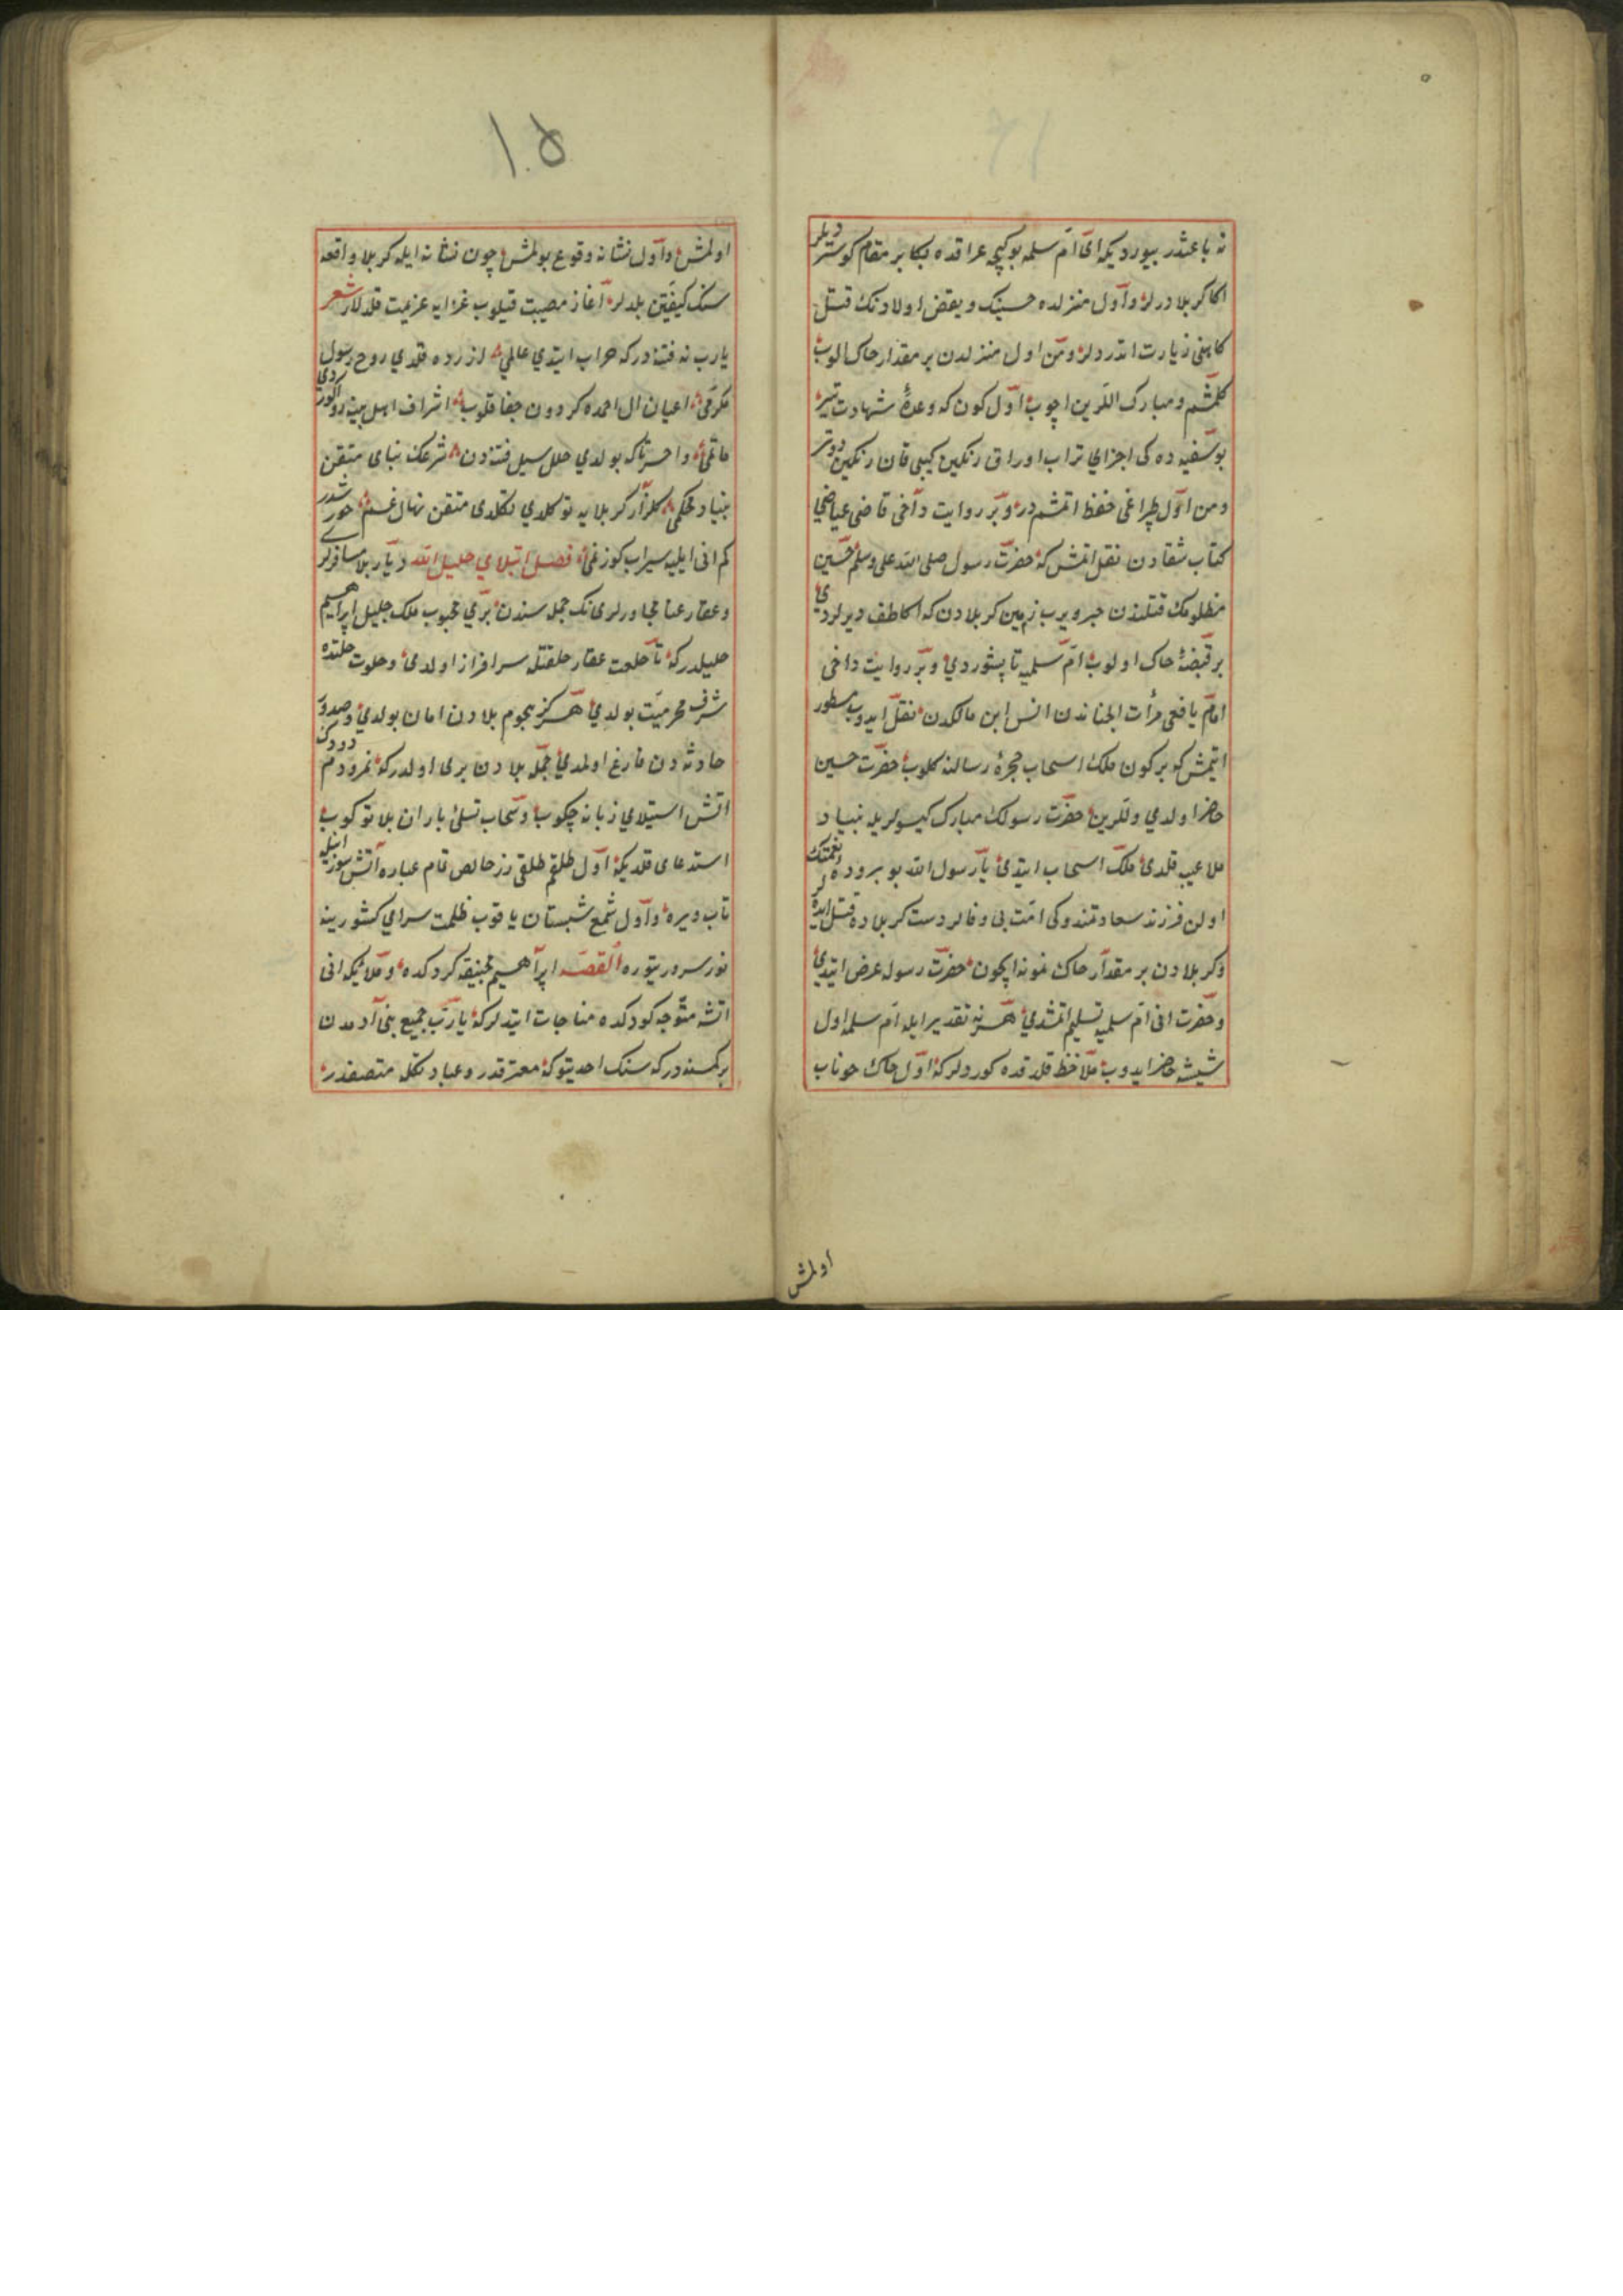 نه باعثدر بیوردیکه ای ام سلمه بو کیجه عراقده بکا بر مقام کوستردیلر
اکا کربلا درلر و اول منزلده حسینک و بعض اولادنک قتل
کاهنی زیارت اتدردیلر و من اول منزلدن بر مقدار خاک الوب
کلمشم و مبارک اللرین اچوب اول کون که وعدهٔ شهادت
بو سفینه ده کی اجزای تراب اوراق رنکین کیبی قان رنکین دوتر
ومن اول طپراغی حفظ اتمشم در و بر روایت داخی قاضی عیاضی
کتاب شفادن نقل اتمش که حضرت رسول صلی الله علی وسلم حسین
مظلومک قتلندن خبر ویرب زمین کربلادن که اکا طف دیرلردی
بر قبضهٔ خاک اولوب ام سلمیه تاپشوردی و بر روایت داخی
امام یافعی مرأت الجناندن انس ابن مالکدن نقل ایدوب مسطور
اتیمش کو بر کون ملک اسحاب حجرهٔ رسالته کلوب حضرت حسین
حاضر اولدی واللرین حضرت رسولک مبارک کیسولریله بنیاد
ملاعبه قلدی ملک اسحاب ایتدی یا رسول الله بو بروردهٔ نعمتک
اولن فرزند سعادتمندوکی امت بی وفالر دست کربلاده قتل ایده لر
و کربلادن بر مقدار خاک نمونه ایچون حضرت رسوله عرض ایتدی
و حضرت انی ام سلمیه تسلیم اتمشدی هر نه تقدیر ایله ام سلمه اول
شیشه حاضر ایدوب ملاحظ قلدقده کوردولر که اول خاک خوناب
اولمش
۱۵
اولمش و اول نشانه وقوع بولمش چون نشانه ایله کربلا واقعه
سنک کیفیتن بلدلر آغاز مصیبت قیلوب غزایه عزیمت قلدلار شعر
یارب نه فتنه درکه خراب ایتدی عالمی ازرده قلدی روح رسول
مکرمی اعیان ال احمده کردون جفا قلوب اشراف اهل بیته
ماتمی واحسرتاکه بولدی خلل سیل فتنه دن شرعک بنای متقن
بنیاد محکمی کلزار کربلایه توکلدی نهال غم
کم انی ایلیه سیراب کوز نمی فصل ابتلای خلیل الله دیار بلا مسافرلر
و عقار عنا مجاورلری نک جمله سندن بری محبوب ملک جلیل ابراهیم
خلیلدرکه تا خلعت خلقتله سرافراز اولدی و خلوت خلتده
شرف محرمیت بولدی هرکز هجوم بلادن امان بولمدی
حادثه دن فارغ اولمدی جمله بلادن بری اولدرکه نمرود
اتش استیلای زبانه چکوب و سحاب تسلی باران بلا توکوب
استدعای قلدیکه اول طلقی زر خالص تمام عیاره آتش
تاب ویره و اول شمع شبستان یاقوب ظلمت سرای کشورینه
نور سرور یتوره القصه ابراهیم منجنیقه کردکده و ملائیکه انی
اتشه متوجه کوردکده مناجات ایتدلر که یارب جمیع بنی آدمدن
بر کمسنه درکه سنک احدیتوکه معترفدر و عبادتکله متصفدر